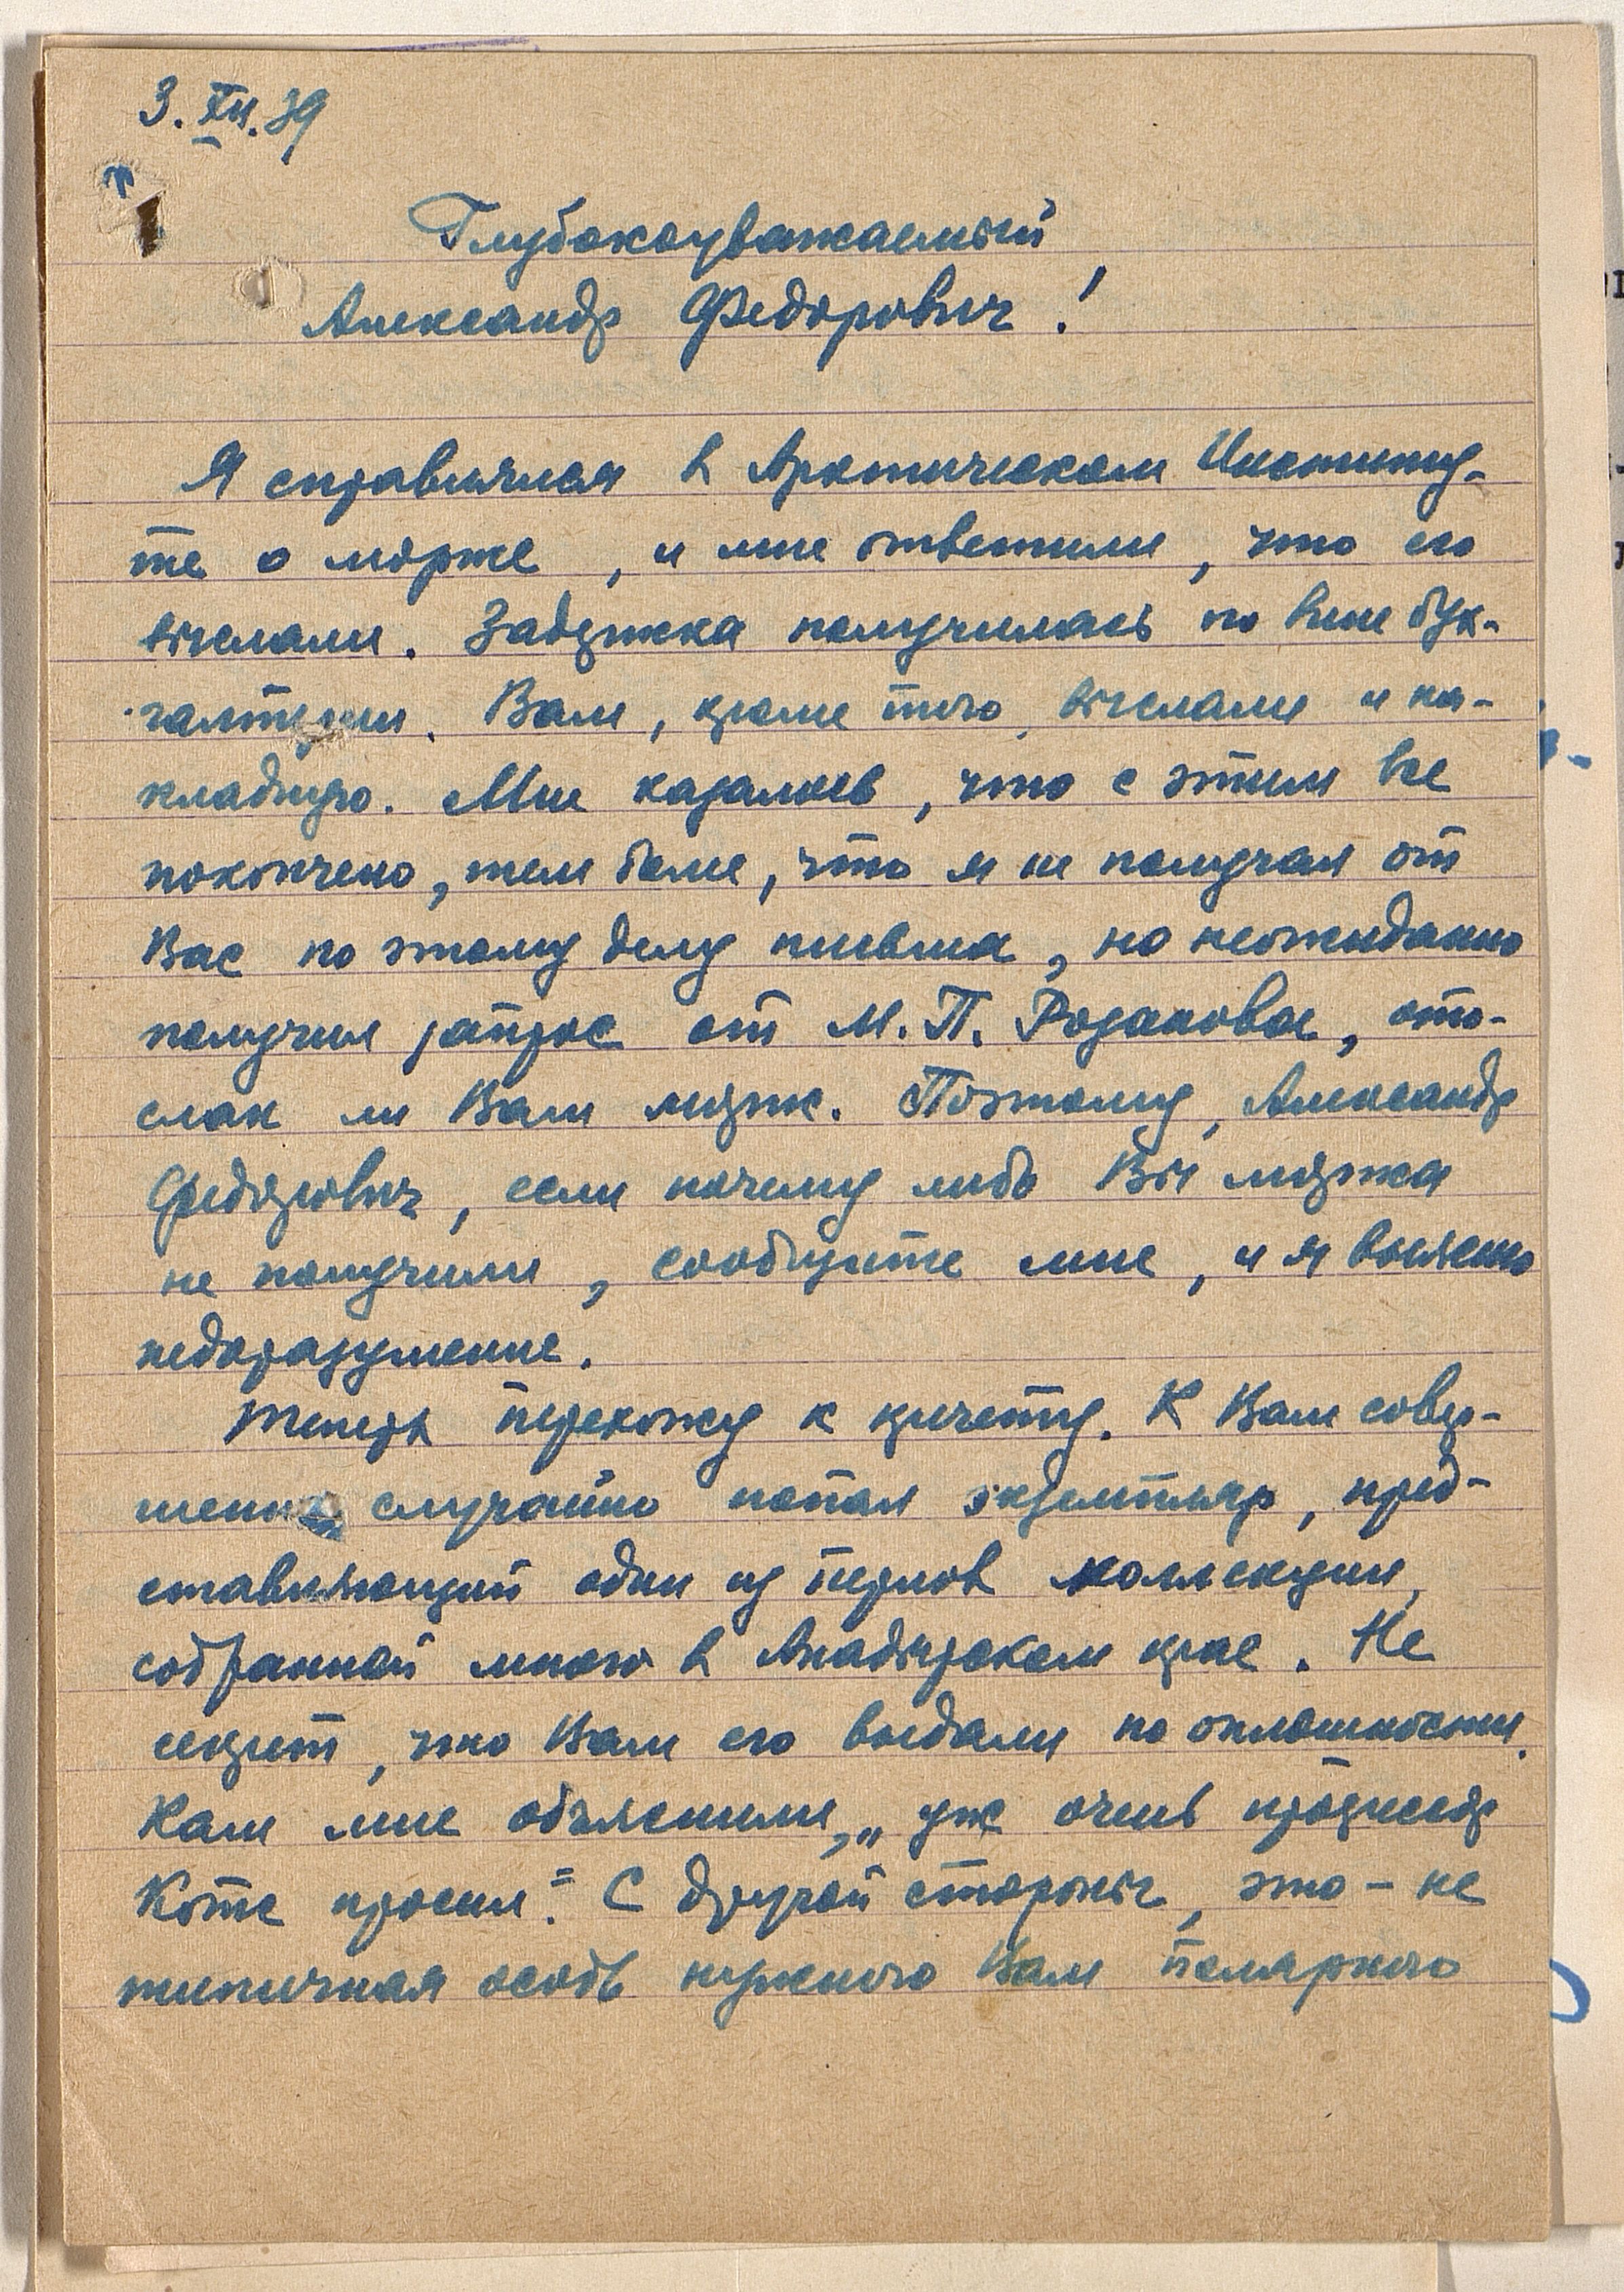 3.XII.39
Глубокоуважаемый
Александр Федорович!
Я справлялся в Арктическом Институ-
те о морже, и мне ответили, что его
выслали. Задержка получилась по вине бух-
галтерии. Вам, кроме того, выслали и на-
кладную. Мне казалось, что с этим все
покончено, тем более, что я не получал от
Вас по этому делу письма, но неожиданно
получил запрос от М. П. Розанова, ото-
слан ли Вам морж. Поэтому, Александр
Федорович, если почему либо Вы моржа
не получили, сообщите мне, и я выясню
недоразумение.
Теперь перехожу к кречету. К Вам совер-
шенно случайно попал экземпляр, пред-
ставляющий один из перлов коллекции,
собранной мною в Анадырском крае. Не
секрет, что Вам его выдали по оплошности.
Как мне объяснили, „уж очень профессор
Котс просил". С другой стороны, это – не
типичная особь нужного Вам полярного